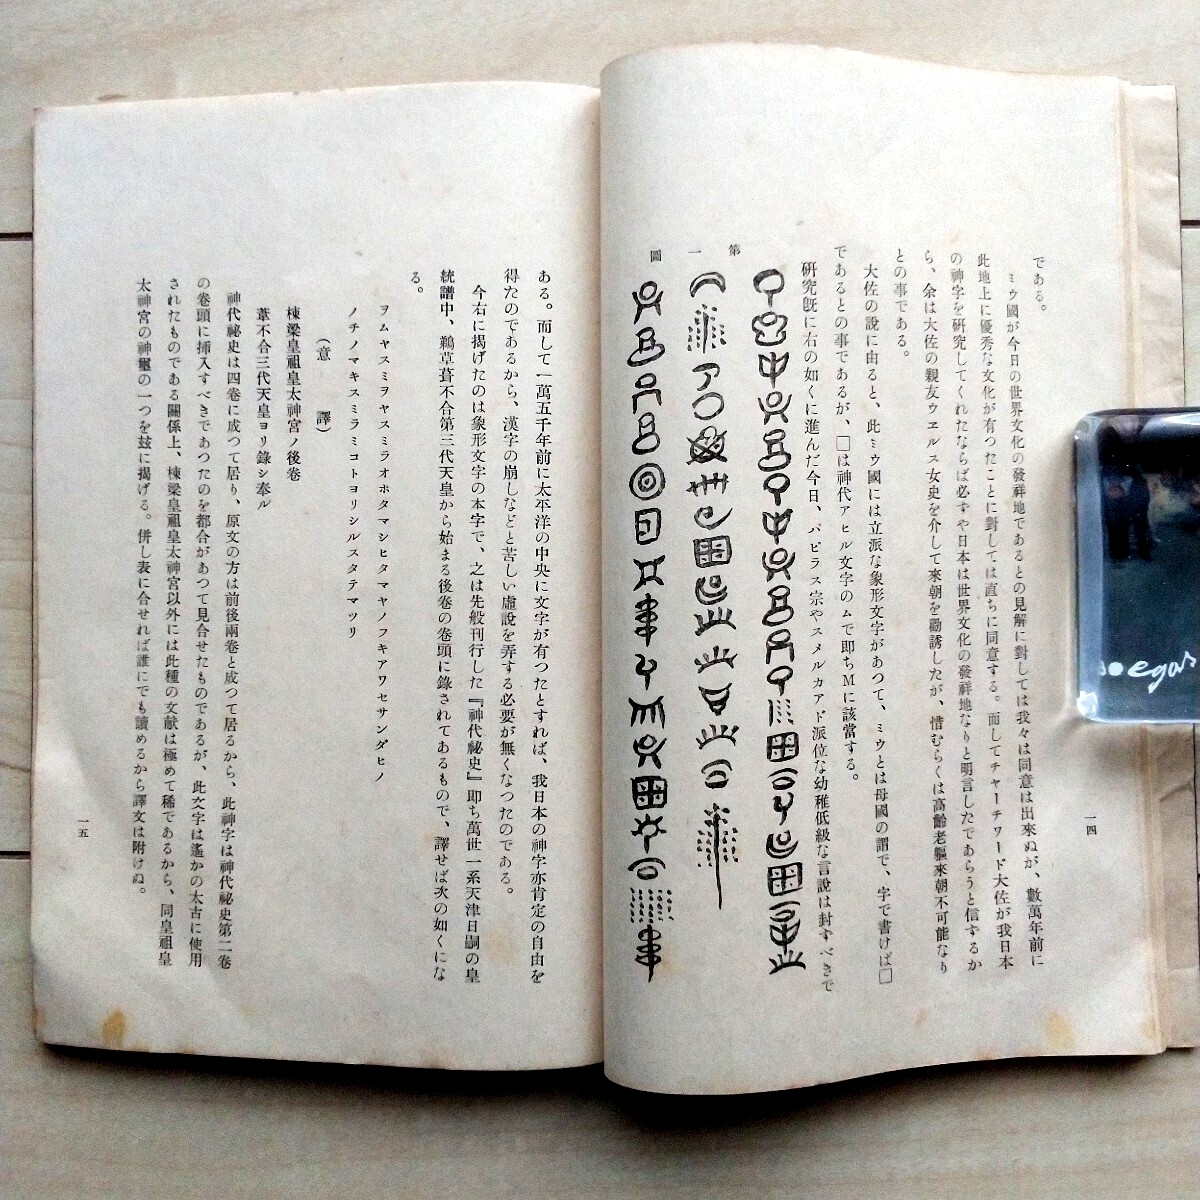 である。
ミウ國が今日の世界文化の發祥地であるとの見解に對しては我々は同意は出來ぬが、數萬年前に
此地上に優秀な文化が有つたことに對しては直ちに同意する。而してチャーチワード大佐が我日本
の神字を研究してくれたならば必ずや日本は世界文化の發祥地なりと明言したであらうと信するか
ら、余は大佐の親友ウエルス女史を介して來朝を勸誘したが、惜むらくは高齡老軀來朝不可能なり
との事である。
大佐の說に由ると、此ミウ國には立派な象形文字があつて、ミウとは母國の謂で、字で書けば□
であるとの事であるが、□は神代アヒル文字のムで即ちMに該當する。
研究旣に右の如くに進んだ今日、パピラス宗やスメルカアド派位な幼稚低級な言說は封すべきで
第一圖
一四
ある。而して一萬五千年前に太平洋の中央に文字が有つたとすれば、我日本の神字亦肯定の自由を
得たのであるから、漢字の崩しなどと苦しい虛說を弄する必要が無くなつたのである。
今右に揭げたのは象形文字の本字で、之は先般刊行した『神代祕史』即ち萬世一系天津日嗣の皇
統譜中、鵜草葺不合第三代天皇から始まる後卷の卷頭に錄されてあるもので、譯せば次の如くにな
る。
ヲムヤスミヲヤスミラオホタマシヒタマヤノフキアワセサンダヒノ
ノチノマキスミラミコトヨリシルスタテマツリ
(意譯)
棟梁皇祖皇太神宮ノ後卷
葦不合三代天皇ヨリ錄シ奉ル
神代祕史は四卷に成つて居り、原文の方は前後兩卷と成つて居るから、此神字は神代祕史第二卷
の卷頭に揷入すべきであつたのを都合があつて見合せたものであるが、此文字は遙かの太古に使用
されたものである關係上、棟梁皇祖皇太神宮以外には此種の文献は極めて稀であるから、同皇祖皇
太神宮の神璽の一つを玆に揭げる。併し表に合せれば誰にでも讀めるから譯文は附けぬ。
一五
egas